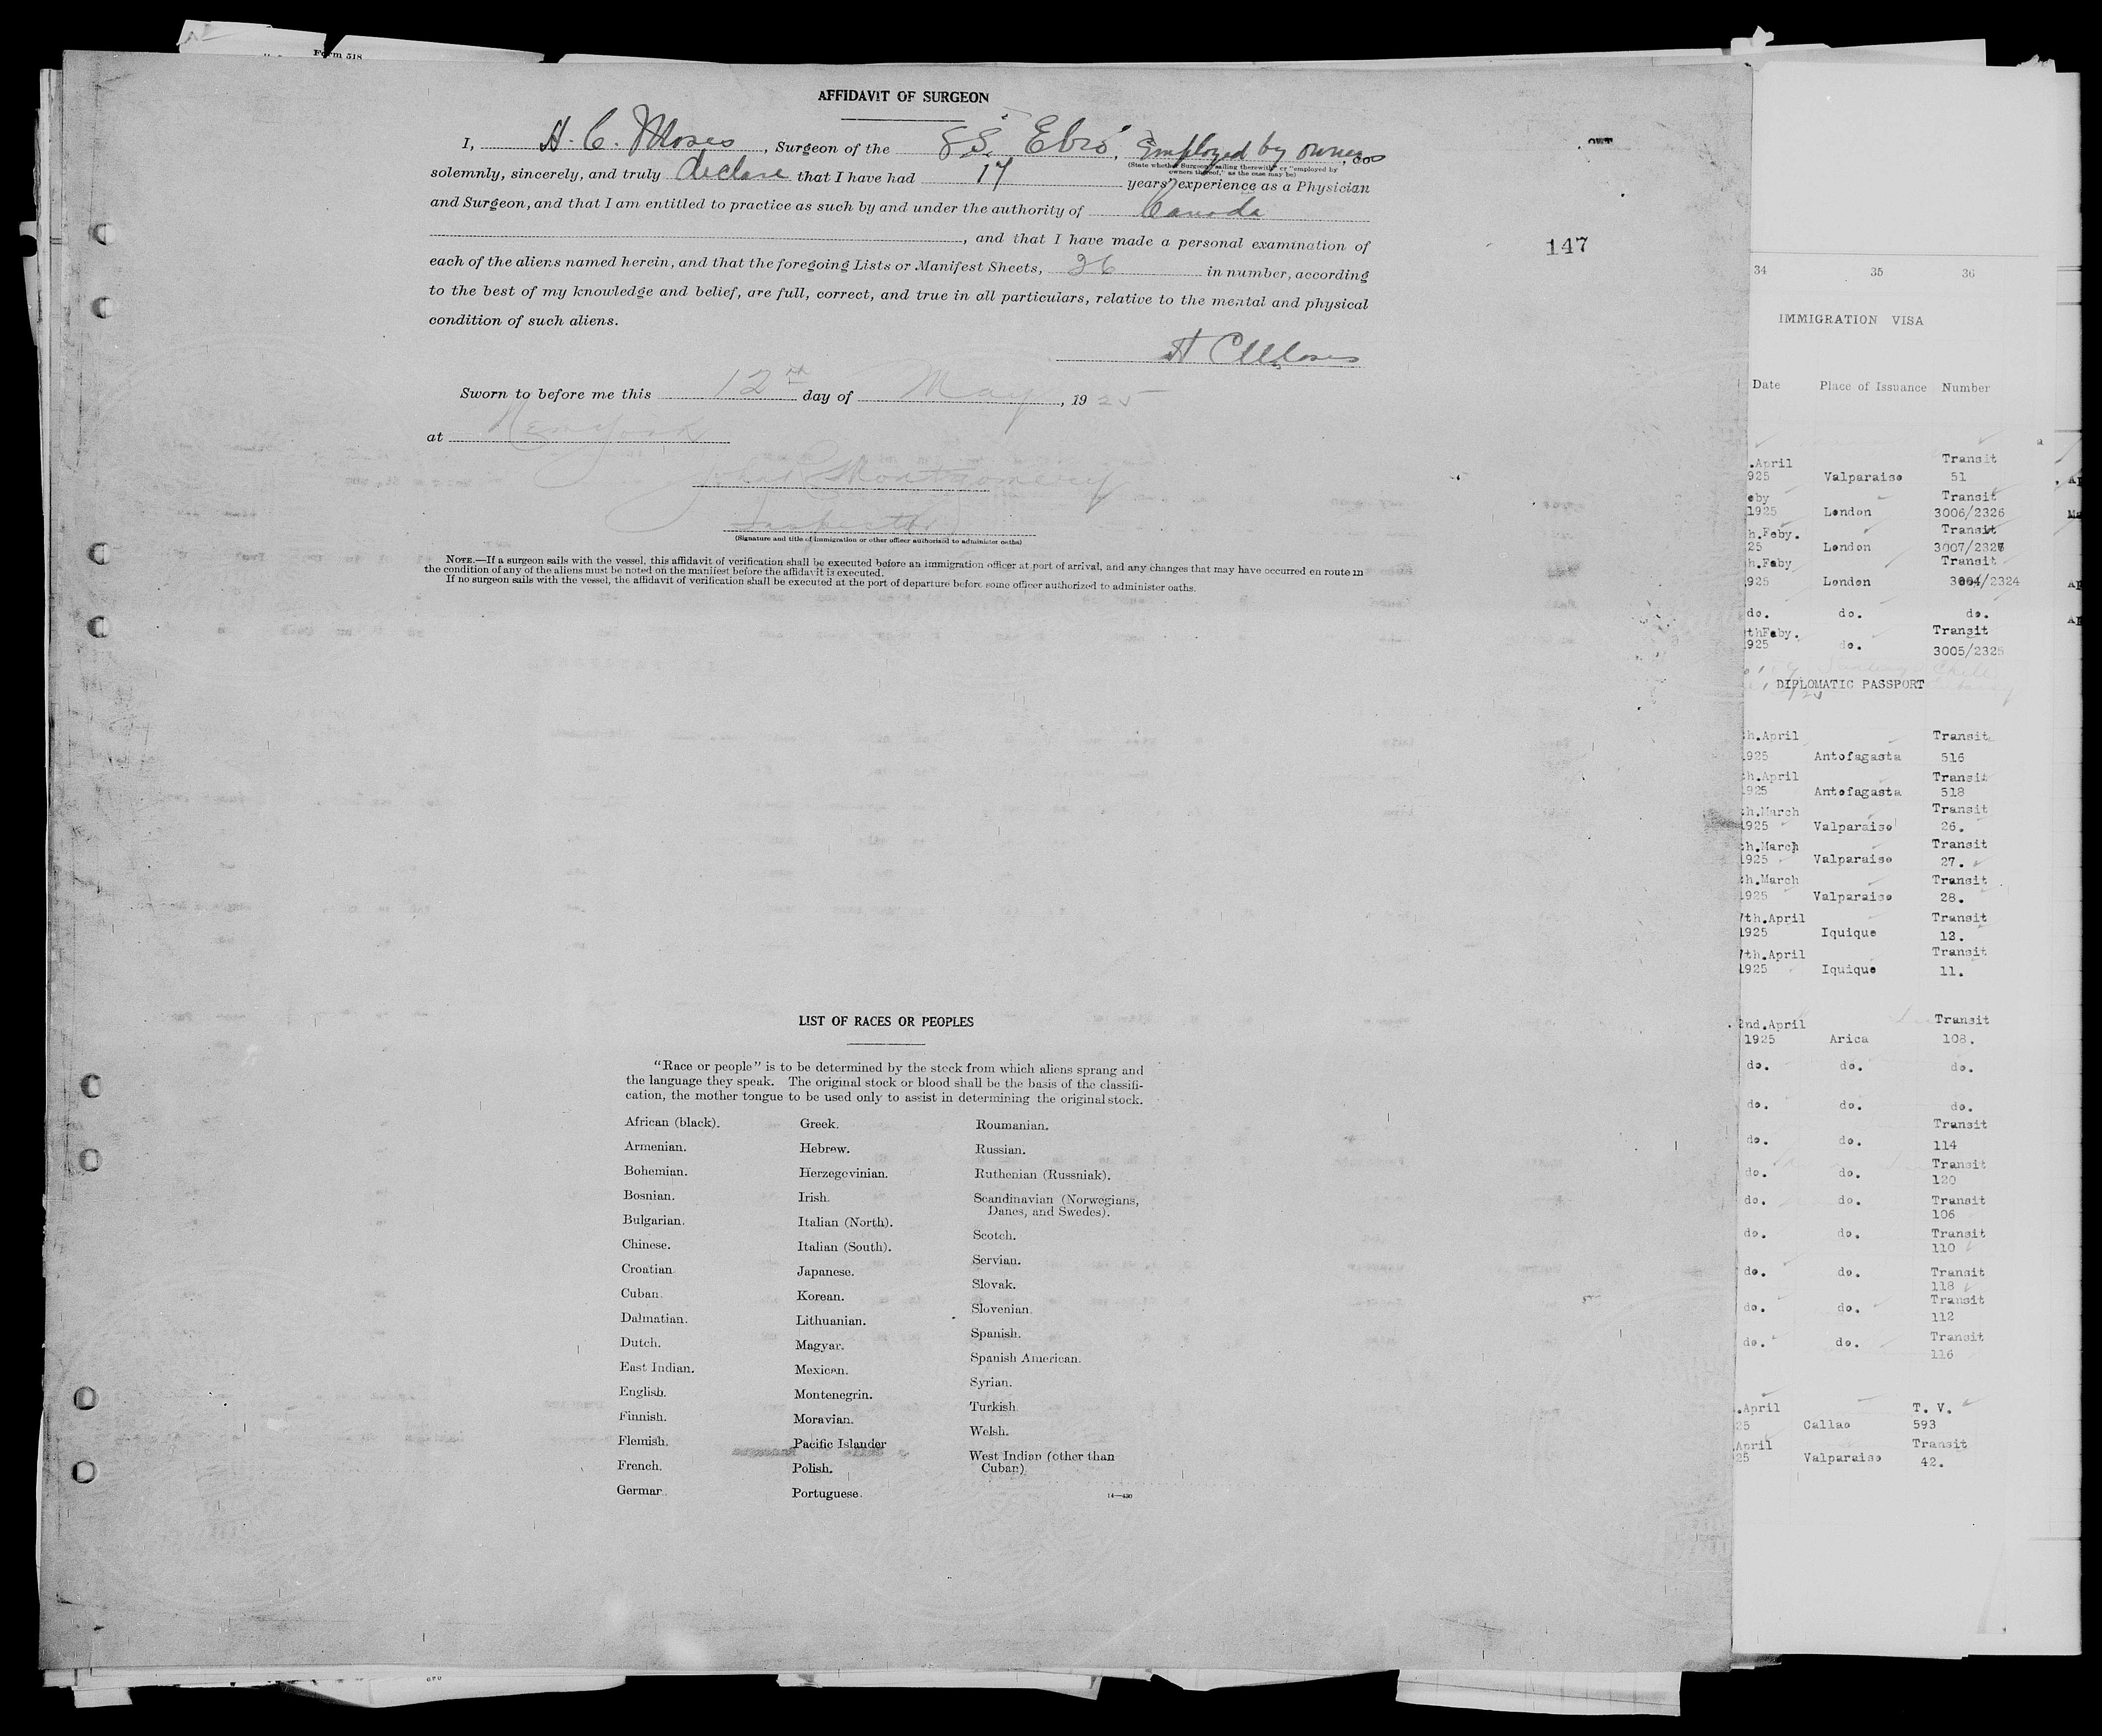 Form 518
AFFIDAVIT OF SURGEON
I, H. C. Moses, Surgeon of the SS. Ebro, Employed by owners, do
(State whether Surgeon "sailing therewith" or "employed by
owners thereof," as the case may be)
solemnly, sincerely, and truly declare that I have had 17 years' experience as a Physician
and Surgeon, and that I am entitled to practice as such by and under the authority of Canada
, and that I have made a personal examination of
each of the aliens named herein, and that the foregoing Lists or Manifest Sheets, 26 in number, according
to the best of my knowledge and belief, are full, correct, and true in all particulars, relative to the mental and physical
condition of such aliens.
H C Moses
Sworn to before me this 12th day of May, 1925
at New York
Montgomery
Inspector
(Signature and title of immigration or other officer authorized to administer oaths)
NOTE.—If a surgeon sails with the vessel, this affidavit of verification shall be executed before an immigration officer at port of arrival, and any changes that may have occurred en route in
the condition of any of the aliens must be noted on the manifest before the affidavit is executed.
If no surgeon sails with the vessel, the affidavit of verification shall be executed at the port of departure before some officer authorized to administer oaths.
147
LIST OF RACES OR PEOPLES
"Race or people" is to be determined by the stock from which aliens sprang and
the language they speak. The original stock or blood shall be the basis of the classifi-
cation, the mother tongue to be used only to assist in determining the original stock.
African (black).
Armenian.
Bohemian.
Bosnian.
Bulgarian.
Chinese.
Croatian
Cuban.
Dalmatian.
Dutch.
East Indian.
English.
Finnish.
Flemish.
French.
German.
Greek.
Hebrew.
Herzegovinian.
Irish.
Italian (North).
Italian (South).
Japanese.
Korean.
Lithuanian.
Magyar.
Mexican.
Montenegrin.
Moravian.
Pacific Islander
Polish.
Portuguese.
Roumanian.
Russian.
Ruthenian (Russniak).
Scandinavian (Norwegians,
Danes, and Swedes).
Scotch.
Servian.
Slovak.
Slovenian.
Spanish.
Spanish American.
Syrian.
Turkish.
Welsh.
West Indian (other than
Cuban)
14—430
34 35 36
IMMIGRATION VISA
Date Place of Issuance Number
.April Transit
925 Valparaiso 51
eby Transit
1925 London 3006/2326
h.Feby. Transit
25 London 3007/2327
h.Feby Transit
925 London 3004/2324
do. do. do.
thFeby. Transit
925 do. 3005/2325
DIPLOMATIC PASSPORT
h.April Transit
1925 Antofagasta 516
h.April Transit
925 Antofagasta 518
h.March Transit
1925 Valparaiso 26.
h.March Transit
1925 Valparaiso 27.
h.March Transit
1925 Valparaiso 28.
7th.April Transit
1925 Iquique 12.
7th.April Transit
1925 Iquique 11.
2nd.April Transit
1925 Arica 108.
do. do. do.
do. do. do.
Transit
do. do. 114
do. do. Transit
120
do. do. Transit
106
do. do. Transit
110
do. do. Transit
118
do. do. Transit
112
do. do. Transit
116
.April T. V.
25 Callao 593
April Transit
25 Valparaiso 42.